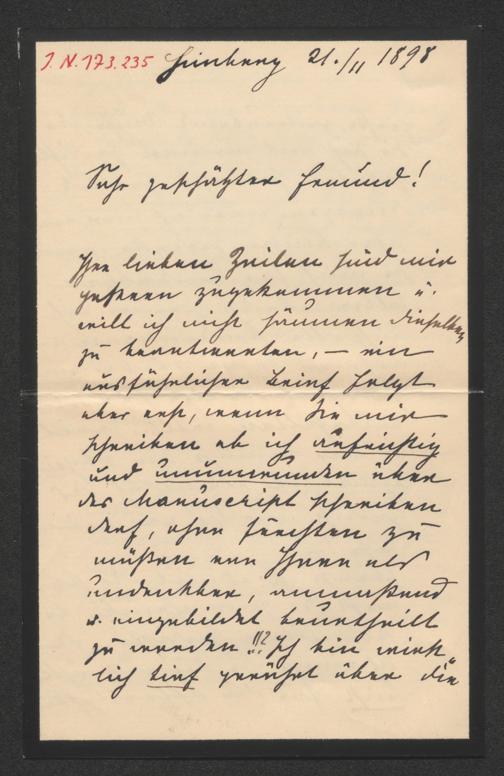 J. N. 173.235
Hainburg 21./II 1898
Sehr geschätzter Freund!
Ihre lieben Zeilen sind mir
gestern zugekommen u.
will ich nicht säumen dieselben
zu beantworten, – ein
ausführlicher Brief folgt
aber erst, wenn Sie mir
schreiben ob ich aufrichtig
und unumwunden über
das Manuscript schreiben
darf, ohne fürchten zu
müßen von Ihnen als
undankbar, anmaßend
u. eingebildet beurtheilt
zu werden!!? Ich bin wirk
lich tief gerührt über die